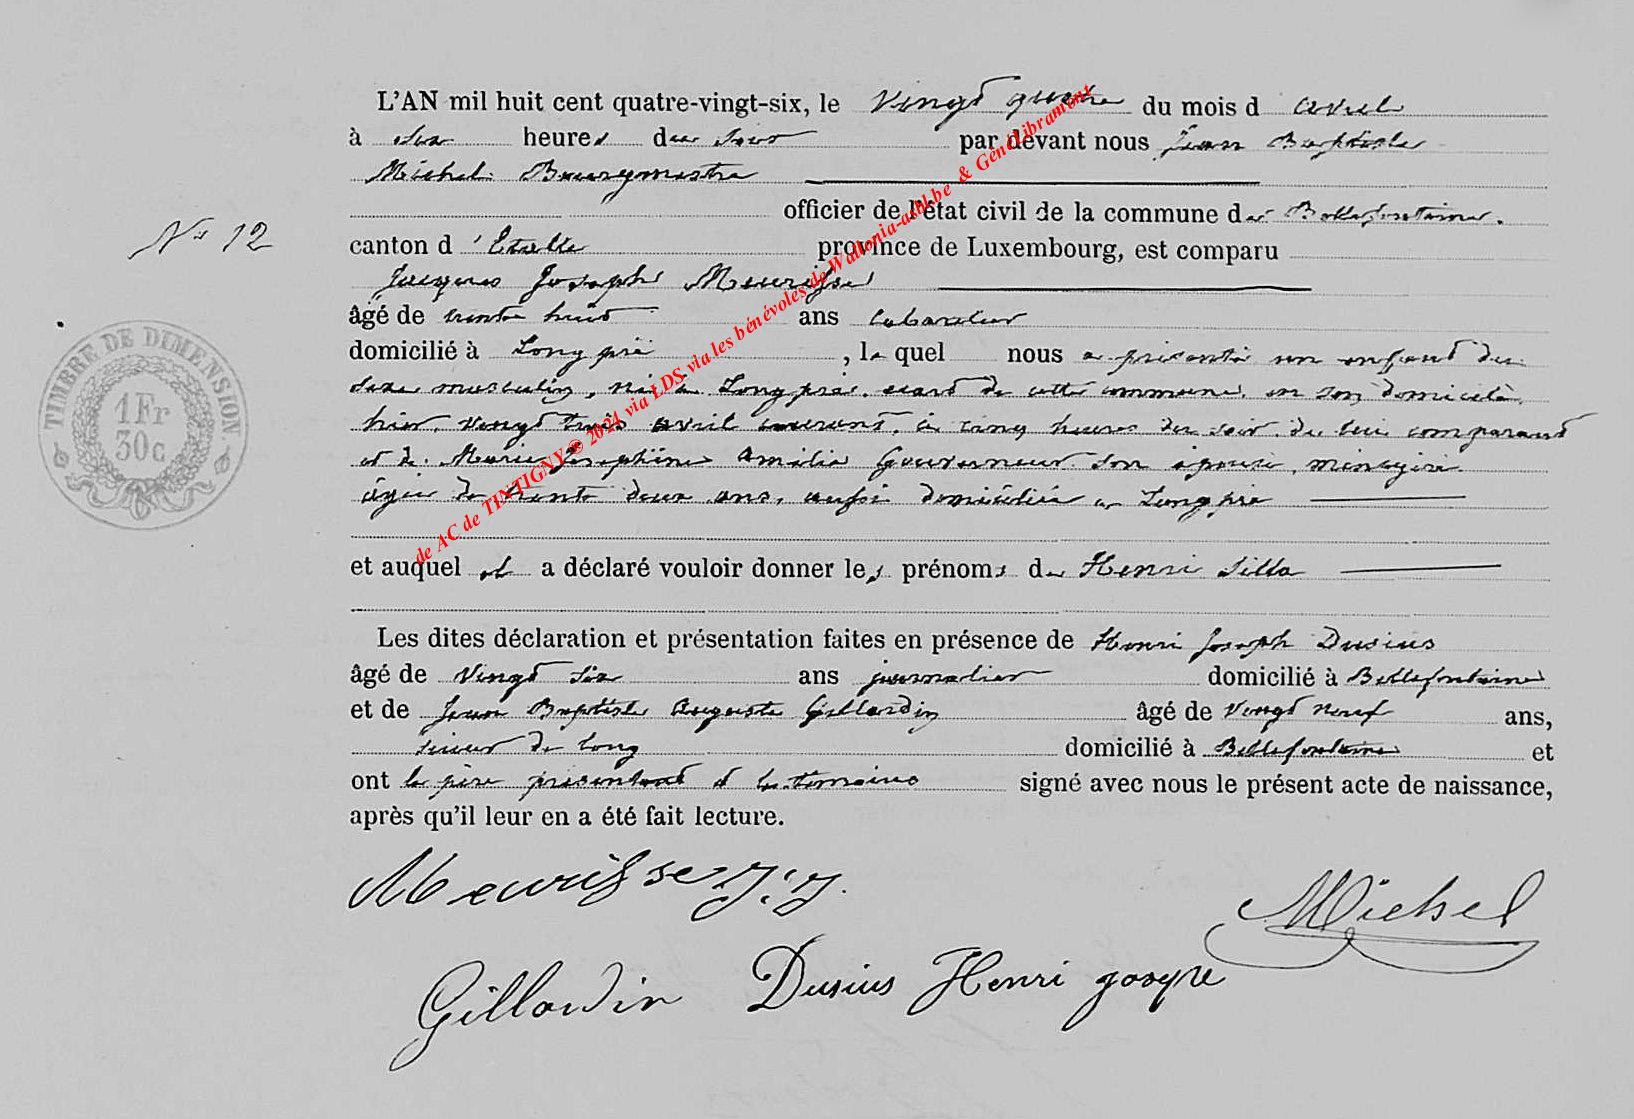 L'AN mil huit cent quatre-vingt-six, le vingt quatre du mois d avril
à six heures du soir par devant nous Jean Baptiste
Michel Bourgmestre
officier de l'état civil de la commune de Bellefontaine.
N° 12
canton d'Etalle province de Luxembourg, est comparu
Jacques Joseph Meurisse
âgé de trente huit ans cabaretier
domicilié à Longpré, le quel nous a présenté un enfant du
sexe masculin, né à Longpré, écart de cette commune, en son domicile,
hier, vingt trois avril courant, à cinq heures du soir, de lui comparant
et de Marie Joséphine Amélie Gouverneur son épouse, ménagère
âgée de trente deux ans, aussi domiciliée à Longpré
et auquel il a déclaré vouloir donner les prénoms de Henri
Les dites déclaration et présentation faites en présence de Henri Joseph Dusius
âgé de vingt six ans journalier domicilié à Bellefontaine
et de Jean Baptiste Auguste Gillardin âgé de vingt neuf ans,
scieur de long domicilié à Bellefontaine et
ont le père présentant et les témoins signé avec nous le présent acte de naissance,
après qu'il leur en a été fait lecture.
Meurisse J:J.
Michel
Gillardin Dusius Henri
TIMBRE DE DIMENSION
1Fr
30c
de AC de TINTIGNY® 2024 via LDS via les bénévoles de Wallonia-asbl.be & GénéLibramont